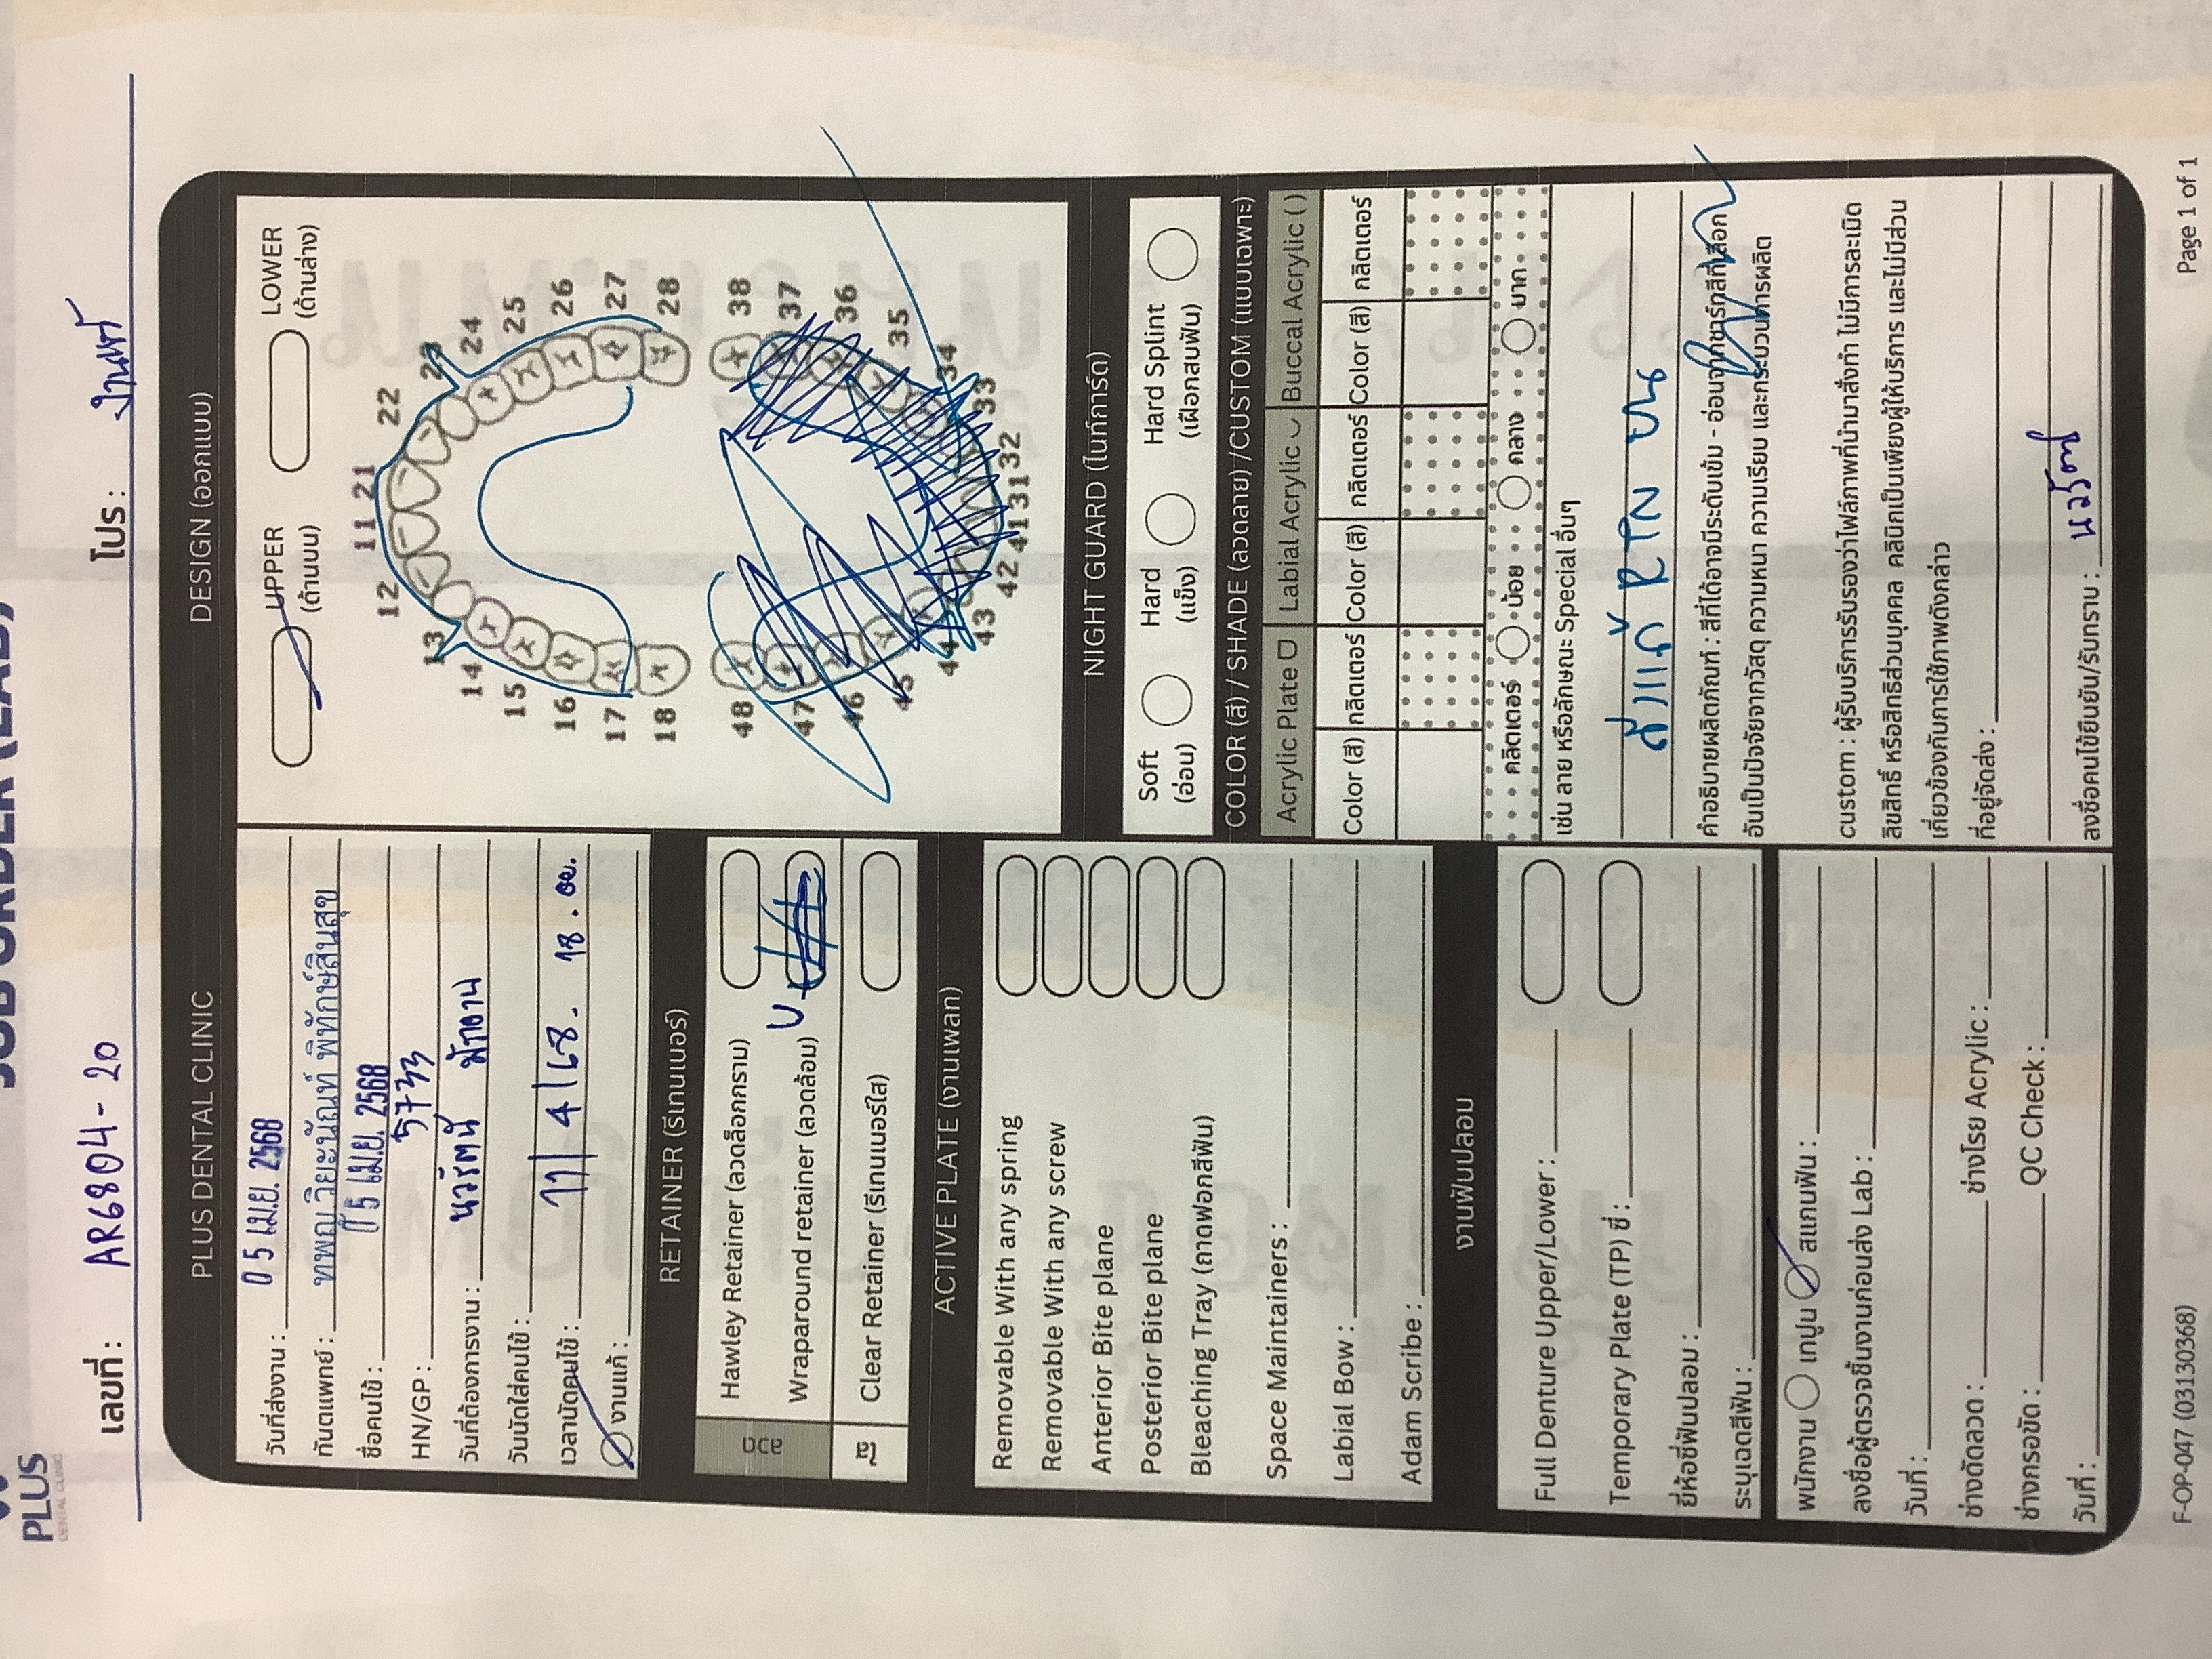 JOB ORDER (LAB)
PLUS
DENTAL CLINIC
เลขที่ : AR6804-20
โปร : งานแก้
PLUS DENTAL CLINIC
วันที่ส่งงาน : 05 เม.ย. 2568
ทันตแพทย์ : ทพญ.วิยะนัณท์ พิทักษ์สินสุข
ชื่อคนไข้ : 05 เม.ย. 2568
HN/GP : 5733
วันที่ต้องการงาน : นวรัตน์
วันนัดใส่คนไข้ :
เวลานัดคนไข้ : 11/4/68. 18.00.
งานแก้ :
RETAINER (รีเทนเนอร์)
ลวด
Hawley Retainer (ลวดล็อกกราม)
Wraparound retainer (ลวดล้อม) U
ใส
Clear Retainer (รีเทนเนอร์ใส)
ACTIVE PLATE (งานเพลท)
Removable With any spring
Removable With any screw
Anterior Bite plane
Posterior Bite plane
Bleaching Tray (ถาดฟอกสีฟัน)
Space Maintainers :
Labial Bow :
Adam Scribe :
งานฟันปลอม
Full Denture Upper/Lower :
Temporary Plate (TP) ซี่ :
ยี่ห้อซี่ฟันปลอม :
ระบุเฉดสีฟัน :
พนักงาน เทปูน สแกนฟัน :
ลงชื่อผู้ตรวจชิ้นงานก่อนส่ง Lab :
วันที่ :
ช่างดัดลวด : ช่างโรย Acrylic :
ช่างกรอขัด : QC Check :
วันที่ :
DESIGN (ออกแบบ)
UPPER LOWER
(ด้านบน) (ด้านล่าง)
11 21
12 22
13 23
14 24
15 25
16 26
17 27
18 28
48 38
47 37
46 36
45 35
44 34
43 33
42 41 31 32
NIGHT GUARD (ไนท์การ์ด)
Soft Hard Hard Splint
(อ่อน) (แข็ง) (เฝือกสบฟัน)
COLOR (สี) / SHADE (ลวดลาย) /CUSTOM (แบบเฉพาะ)
Acrylic Plate Labial Acrylic Buccal Acrylic ( )
Color (สี) กลิตเตอร์ Color (สี) กลิตเตอร์ Color (สี) กลิตเตอร์
กลิตเตอร์ น้อย กลาง มาก
เช่น ลาย หรือลักษณะ Special อื่นๆ
ส่งแก้ RTN บน
คำอธิบายผลิตภัณฑ์ : สีที่ได้อาจมีระดับเข้ม - อ่อนจากชาร์ทสีที่เลือก
อันเป็นปัจจัยจากวัสดุ ความหนา ความเรียบ และกระบวนการผลิต
custom : ผู้รับบริการรับรองว่าไฟล์ภาพที่นำมาสั่งทำ ไม่มีการละเมิด
ลิขสิทธิ์ หรือสิทธิส่วนบุคคล คลินิกเป็นเพียงผู้ให้บริการ และไม่มีส่วน
เกี่ยวข้องกับการใช้ภาพดังกล่าว
ที่อยู่จัดส่ง :
ลงชื่อคนไข้ยืนยัน/รับทราบ : นวรัตน์
F-OP-047 (03130368)
Page 1 of 1